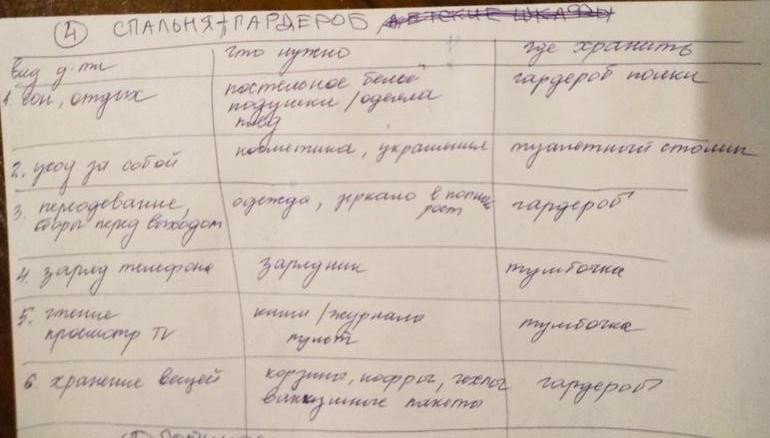 ④ СПАЛЬНЯ + ГАРДЕРОБ, ДЕТСКИЕ ШКАФЫ
вид д-ти что нужно где хранить
1. сон, отдых постельное бельё гардероб полки
подушки / одеяла
плед
2. уход за собой косметика, украшения туалетный столик
3. переодевание, одежда, зеркало в полный гардероб
сборы перед выходом рост
4. заряд телефона зарядник тумбочка
5. чтение книги / журналы тумбочка
просмотр TV пульт
6. хранение вещей корзины, кофры, чехлы гардероб
вакуумные пакеты